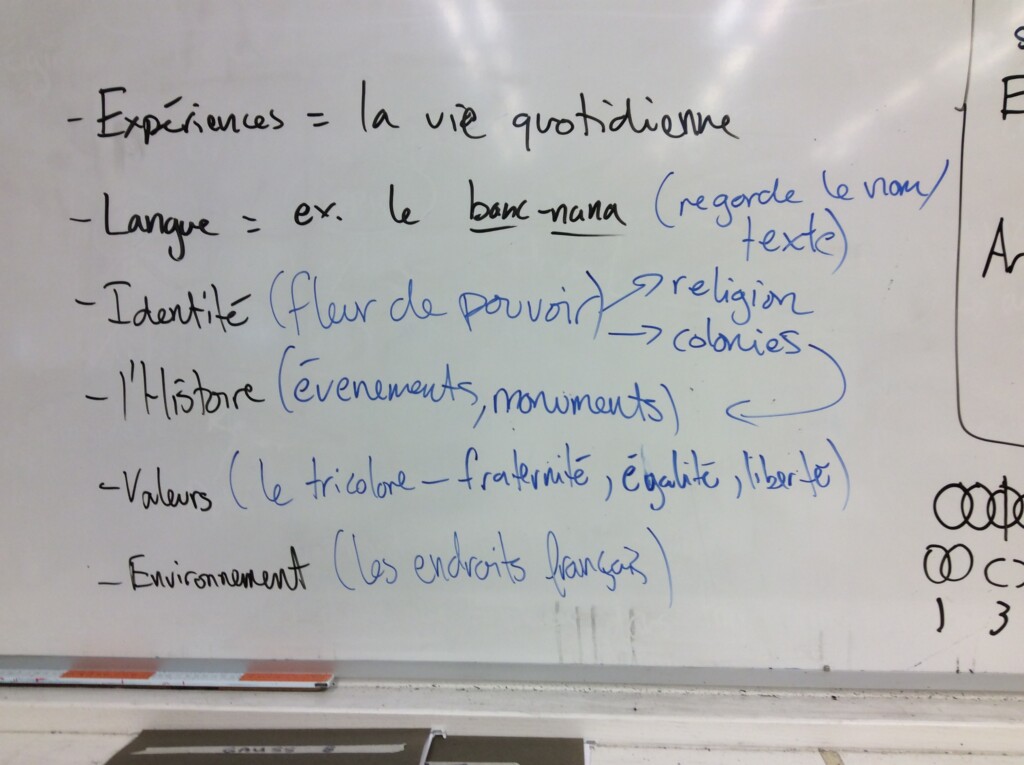 - Expériences = la vie quotidienne
- Langue = ex. le banc-nana (regarde le nom/
texte)
- Identité (fleur de pouvoir) → religion
→ colonies
- l'Histoire (évenements, monuments)
- Valeurs (le tricolore - fraternité, égalité, liberté)
- Environnement (les endroits français)
E
Ar
1 3